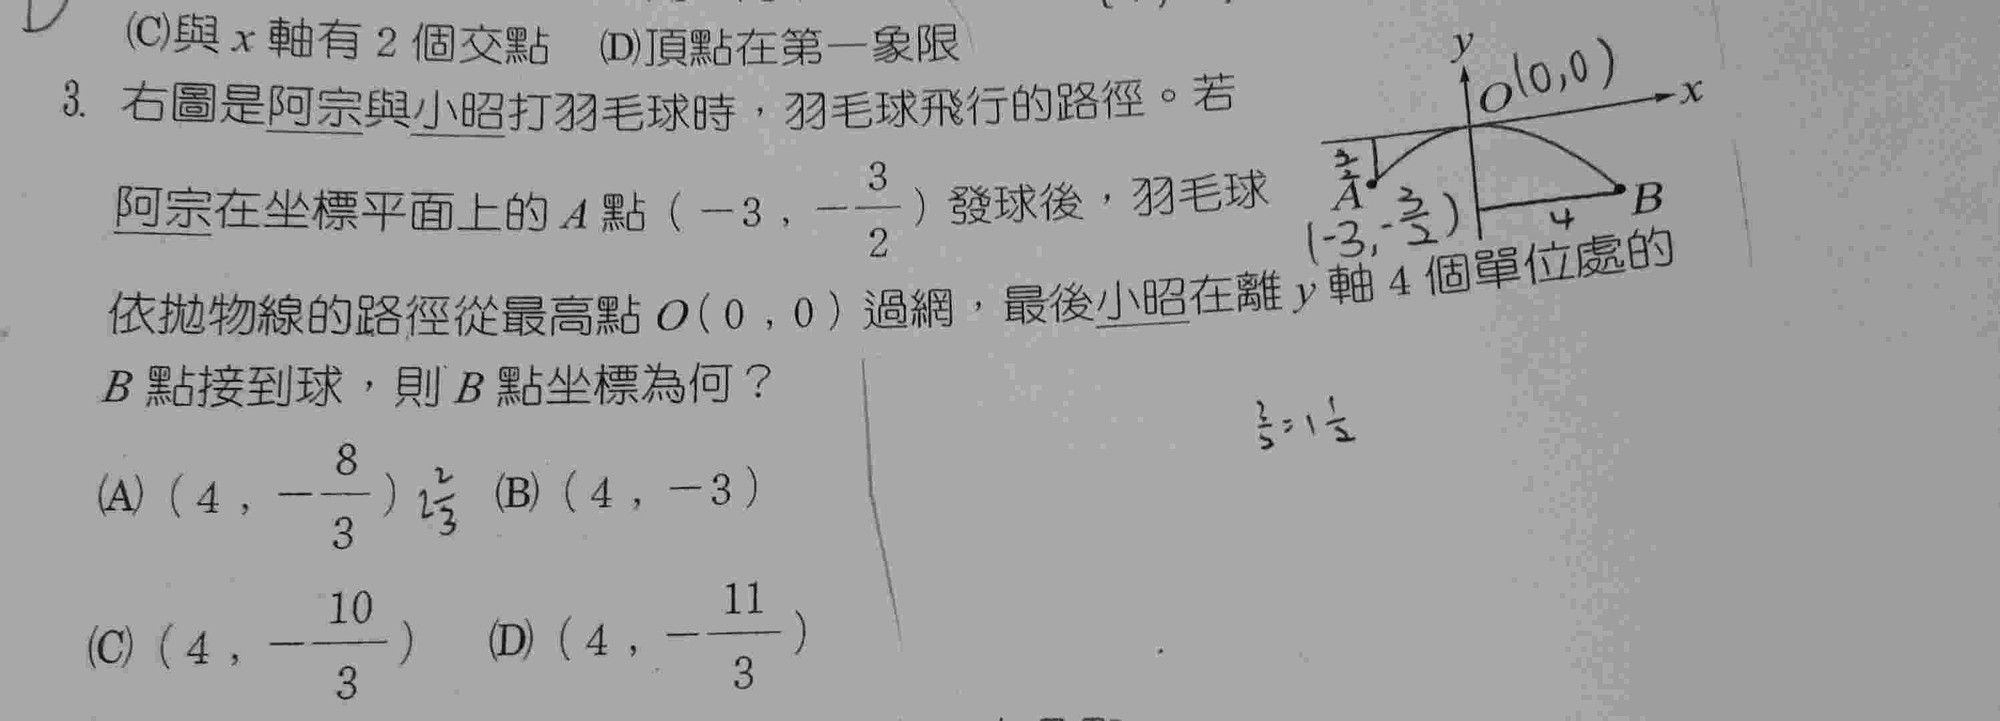 (C)與 x 軸有 2 個交點 (D)頂點在第一象限
3. 右圖是阿宗與小昭打羽毛球時，羽毛球飛行的路徑。若
阿宗在坐標平面上的 A 點（－3，－3/2）發球後，羽毛球
依拋物線的路徑從最高點 O（0，0）過網，最後小昭在離 y 軸 4 個單位處的
B 點接到球，則 B 點坐標為何？
(A)（4，－8/3） 2 2/3 (B)（4，－3）
(C)（4，－10/3） (D)（4，－11/3）
y
O(0,0)
x
3/2
A
B
(-3,-3/2)
4
=1 1/2